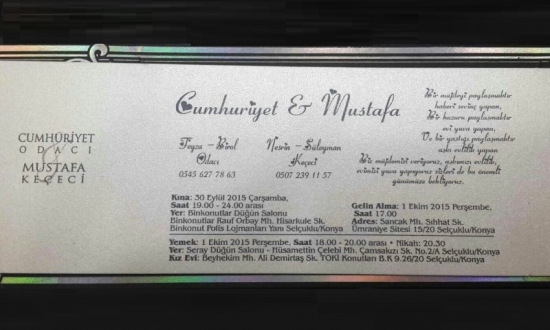 CUMHURİYET
ODACI
&
MUSTAFA
KEÇECİ
Cumhuriyet & Mustafa
Feyza - Birol
Odacı
0545 627 78 63
Nesrin - Süleyman
Keçeci
0507 239 11 57
Bir müjdeyi paylaşmaktır
haberi sevinç yapan,
Bir huzuru paylaşmaktır
evi yuva yapan,
Ve bir yastığı paylaşmaktır
aşkı evlilik yapan
Bir müjdemizi veriyoruz, aşkımızı evlilik,
evimizi yuva yapıyoruz sizleri de bu önemli
günümüze bekliyoruz.
Kına: 30 Eylül 2015 Çarşamba,
Saat 19.00 - 24.00 arası
Yer: Binkonutlar Düğün Salonu
Binkonutlar Rauf Orbay Mh. Hisarkule Sk.
Binkonut Polis Lojmanları Yanı Selçuklu/Konya
Gelin Alma: 1 Ekim 2015 Perşembe,
Saat 17.00
Adres: Sancak Mh. Sıhhat Sk.
Ümraniye Sitesi 15/20 Selçuklu/Konya
Yemek: 1 Ekim 2015 Perşembe, Saat 18.00 - 20.00 arası • Nikah: 20.30
Yer: Seray Düğün Salonu - Hüsamettin Çelebi Mh. Çamsakızı Sk. No.2/A Selçuklu/Konya
Kız Evi: Beyhekim Mh. Ali Demirtaş Sk. TOKİ Konutları B.K 9.26/20 Selçuklu/Konya